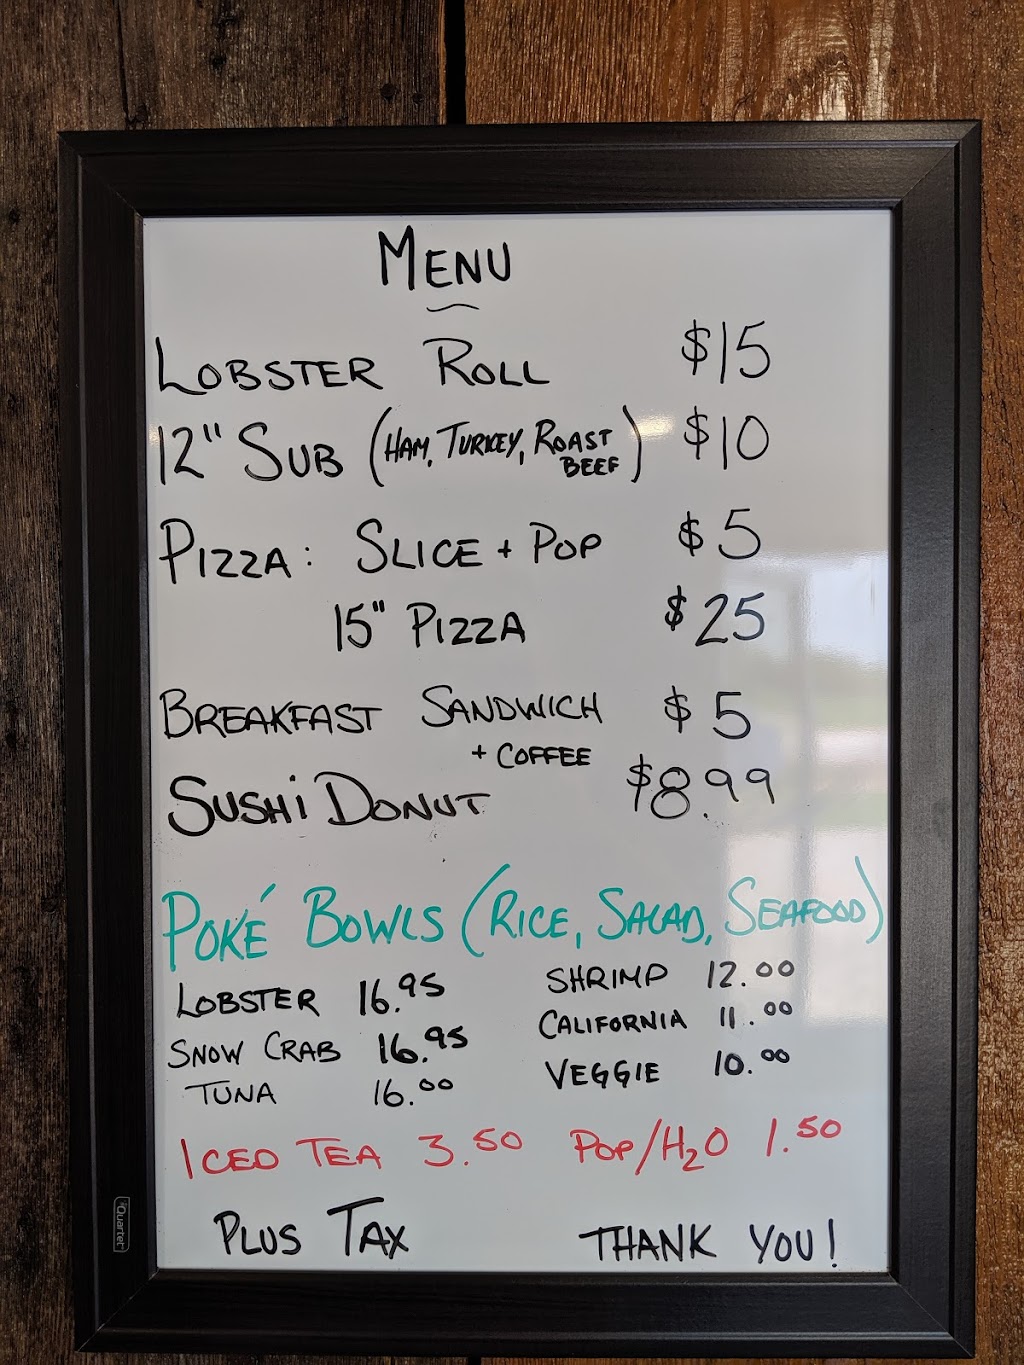 MENU
LOBSTER ROLL $15
12" SUB (HAM, TURKEY, ROAST BEEF) $10
PIZZA: SLICE + POP $5
15" PIZZA $25
BREAKFAST SANDWICH $5
+ COFFEE
SUSHI DONUT $8.99
POKÉ BOWLS (RICE, SALAD, SEAFOOD)
LOBSTER 16.95 SHRIMP 12.00
SNOW CRAB 16.95 CALIFORNIA 11.00
TUNA 16.00 VEGGIE 10.00
ICED TEA 3.50 POP/H2O 1.50
PLUS TAX THANK YOU!
Quartet